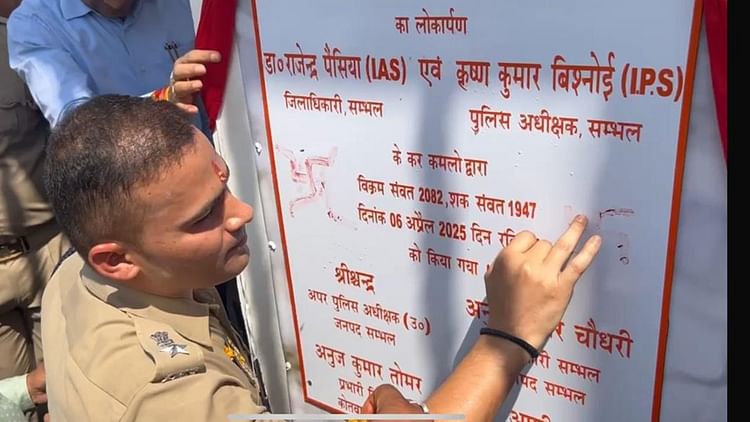 का लोकार्पण
डा० राजेन्द्र पैंसिया (IAS) एवं कृष्ण कुमार बिश्नोई (I.P.S)
जिलाधिकारी, सम्भल
पुलिस अधीक्षक, सम्भल
के कर कमलो द्वारा
विक्रम संवत 2082, शक संवत 1947
दिनांक 06 अप्रैल 2025 दिन
को किया गया
श्रीश्चन्द्र
अपर पुलिस अधीक्षक (उ०)
जनपद सम्भल
चौधरी
सम्भल
सम्भल
अनुज कुमार तोमर
प्रभारी